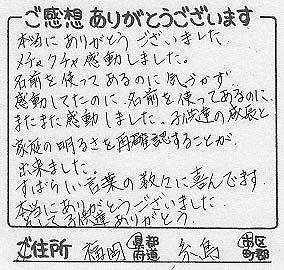 ご感想 ありがとうございます
本当に ありがとう ございました。
メチャクチャ感動しました。
名前を使ってあるのに気づかず
感動してたのに、名前を使ってあるのに、
またまた感動しました。子供達の成長と
家族の明るさを再確認することが
出来ました。
すばらしい言葉の数々に喜んでます。
本当にありがとうございました。
子供達ありがとう。
ご住所 福岡 都道府県 糸島 市区町郡